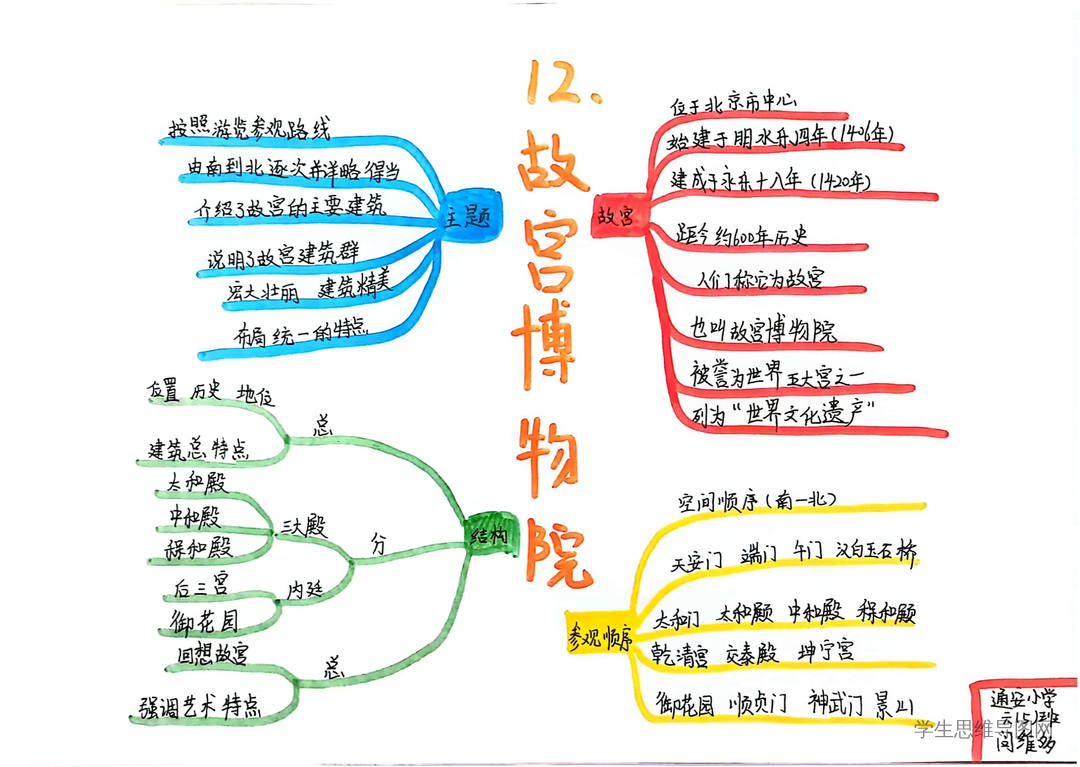 12.故宫博物院
主题
按照游览参观路线
由南到北逐次并详略得当
介绍了故宫的主要建筑
说明了故宫建筑群
宏大壮丽 建筑精美
布局统一的特点
故宫
位于北京市中心
始建于明永乐四年(1406年)
建成于永乐十八年(1420年)
距今约600年历史
人们称它为故宫
也叫故宫博物院
被誉为世界五大宫之一
列为“世界文化遗产”
结构
总
位置 历史 地位
建筑总特点
分
三大殿
太和殿
中和殿
保和殿
内廷
后三宫
御花园
总
回想故宫
强调艺术特点
参观顺序
空间顺序(南一北)
天安门 端门 午门 汉白玉石桥
太和门 太和殿 中和殿 保和殿
乾清宫 交泰殿 坤宁宫
御花园 顺贞门 神武门 景山
通安小学
六(5)班
闫维多
学生思维导图网